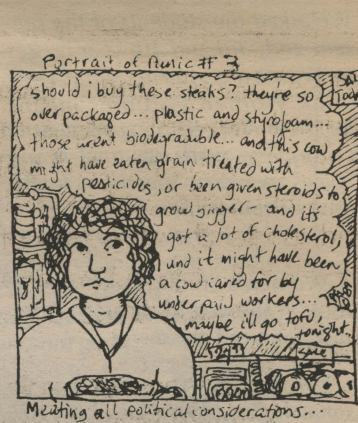 Portrait of Panic # 3
should i buy these steaks? they're so
overpackaged... plastic and styrofoam...
those arent biodegradable... and this cow
might have eaten grain treated with
pesticides, or been given steroids to
grow bigger - and its
got a lot of cholesterol,
and it might have been
a cow cared for by
underpaid workers...
maybe ill go tofu,
tonight...
SALE
Meating all political considerations...